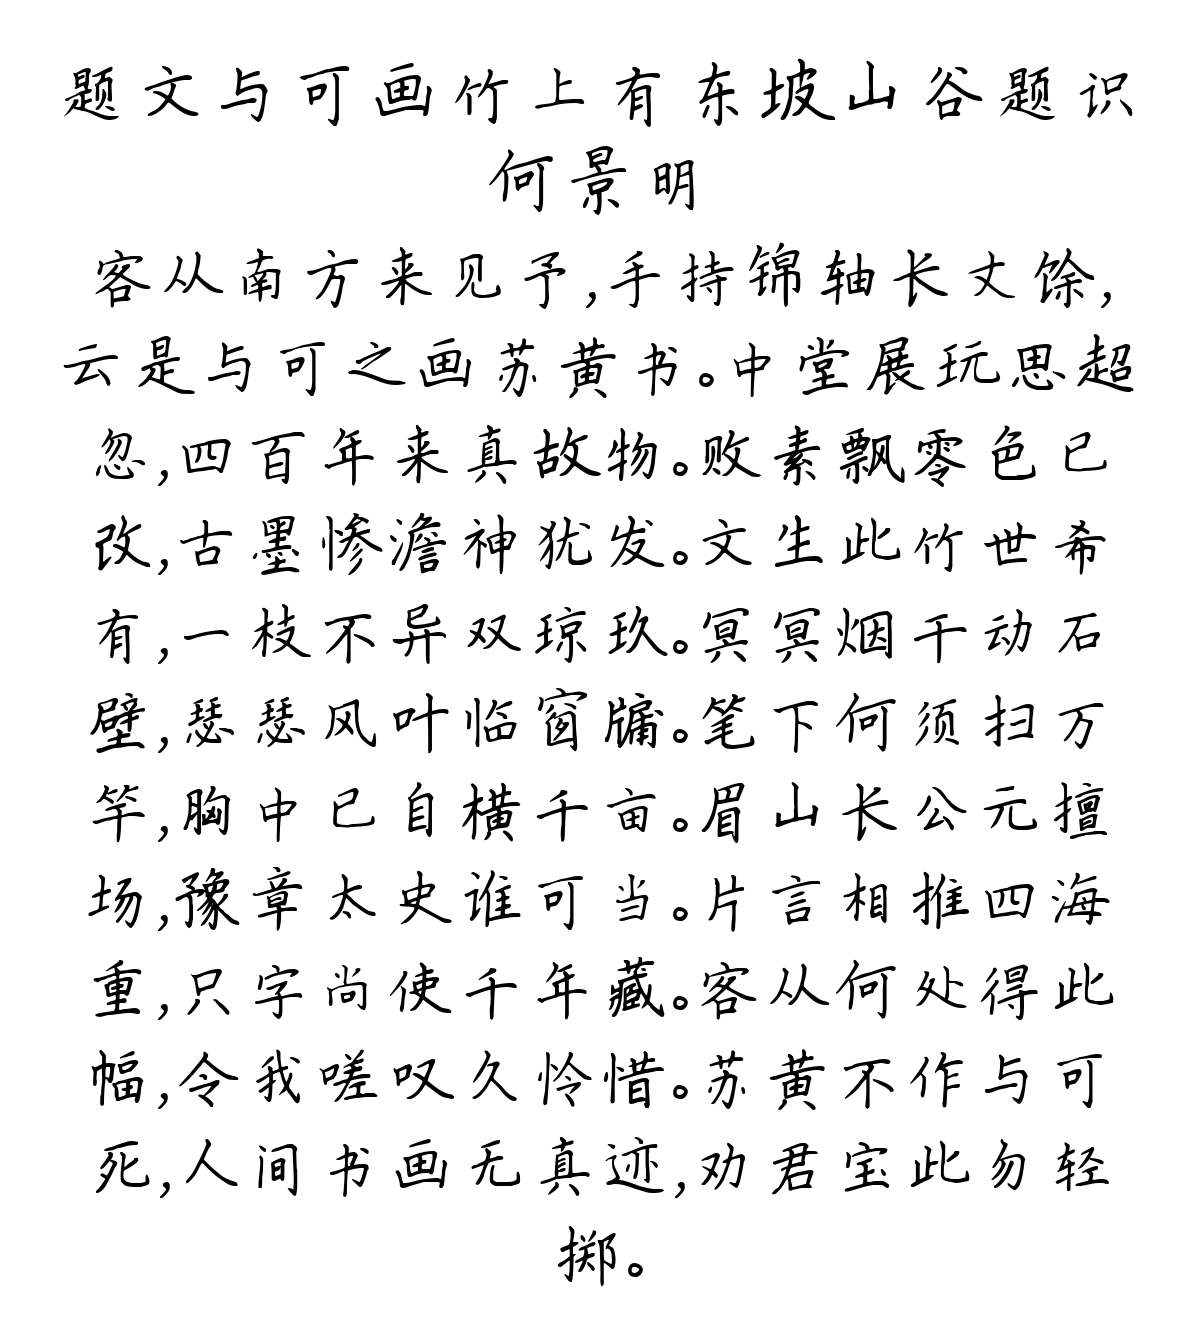 题文与可画竹上有东坡山谷题识
何景明
客从南方来见予,手持锦轴长丈馀,
云是与可之画苏黄书。中堂展玩思超
忽,四百年来真故物。败素飘零色已
改,古墨惨澹神犹发。文生此竹世希
有,一枝不异双琼玖。冥冥烟干动石
壁,瑟瑟风叶临窗牖。笔下何须扫万
竿,胸中已自横千亩。眉山长公元擅
场,豫章太史谁可当。片言相推四海
重,只字尚使千年藏。客从何处得此
幅,令我嗟叹久怜惜。苏黄不作与可
死,人间书画无真迹,劝君宝此勿轻
掷。